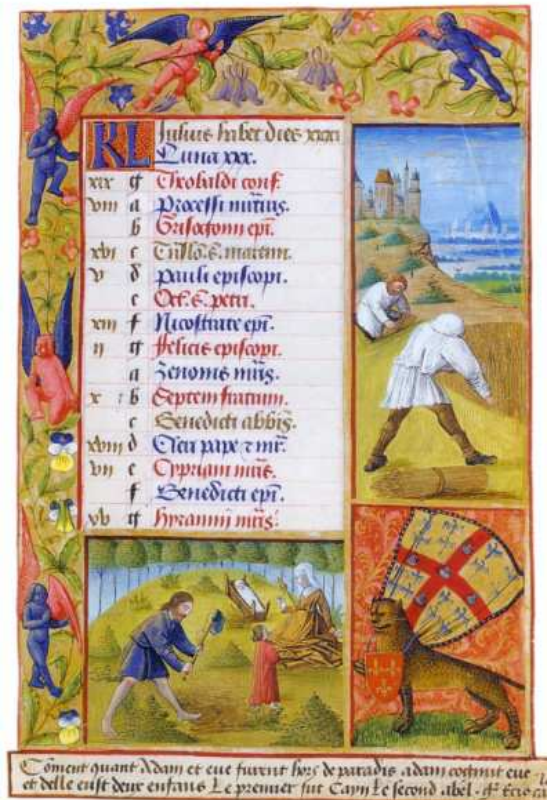 KL Julius habet dies xxxi
Luna xxx.
xix g Theobaldi conf.
viii a Processi mrtiris.
b Grisogoni epi.
xvi c Trāsl. s. martini.
v d Pauli episcopi.
e Oct. s. petri.
xiii f Nicostrate epi.
ii g Felicis episcopi.
a Zenonis mris.
x b Septem fratrum.
c Benedicti abbis.
xviii d Cleti pape z mr.
vii e Cypriani mris.
f Benedicti epi.
xv g mris.
Cōment quant Adam et eue furent hors de paradis adam cognut eue
et delle eust deux enfans Le premier fut Cayn Le second abel.